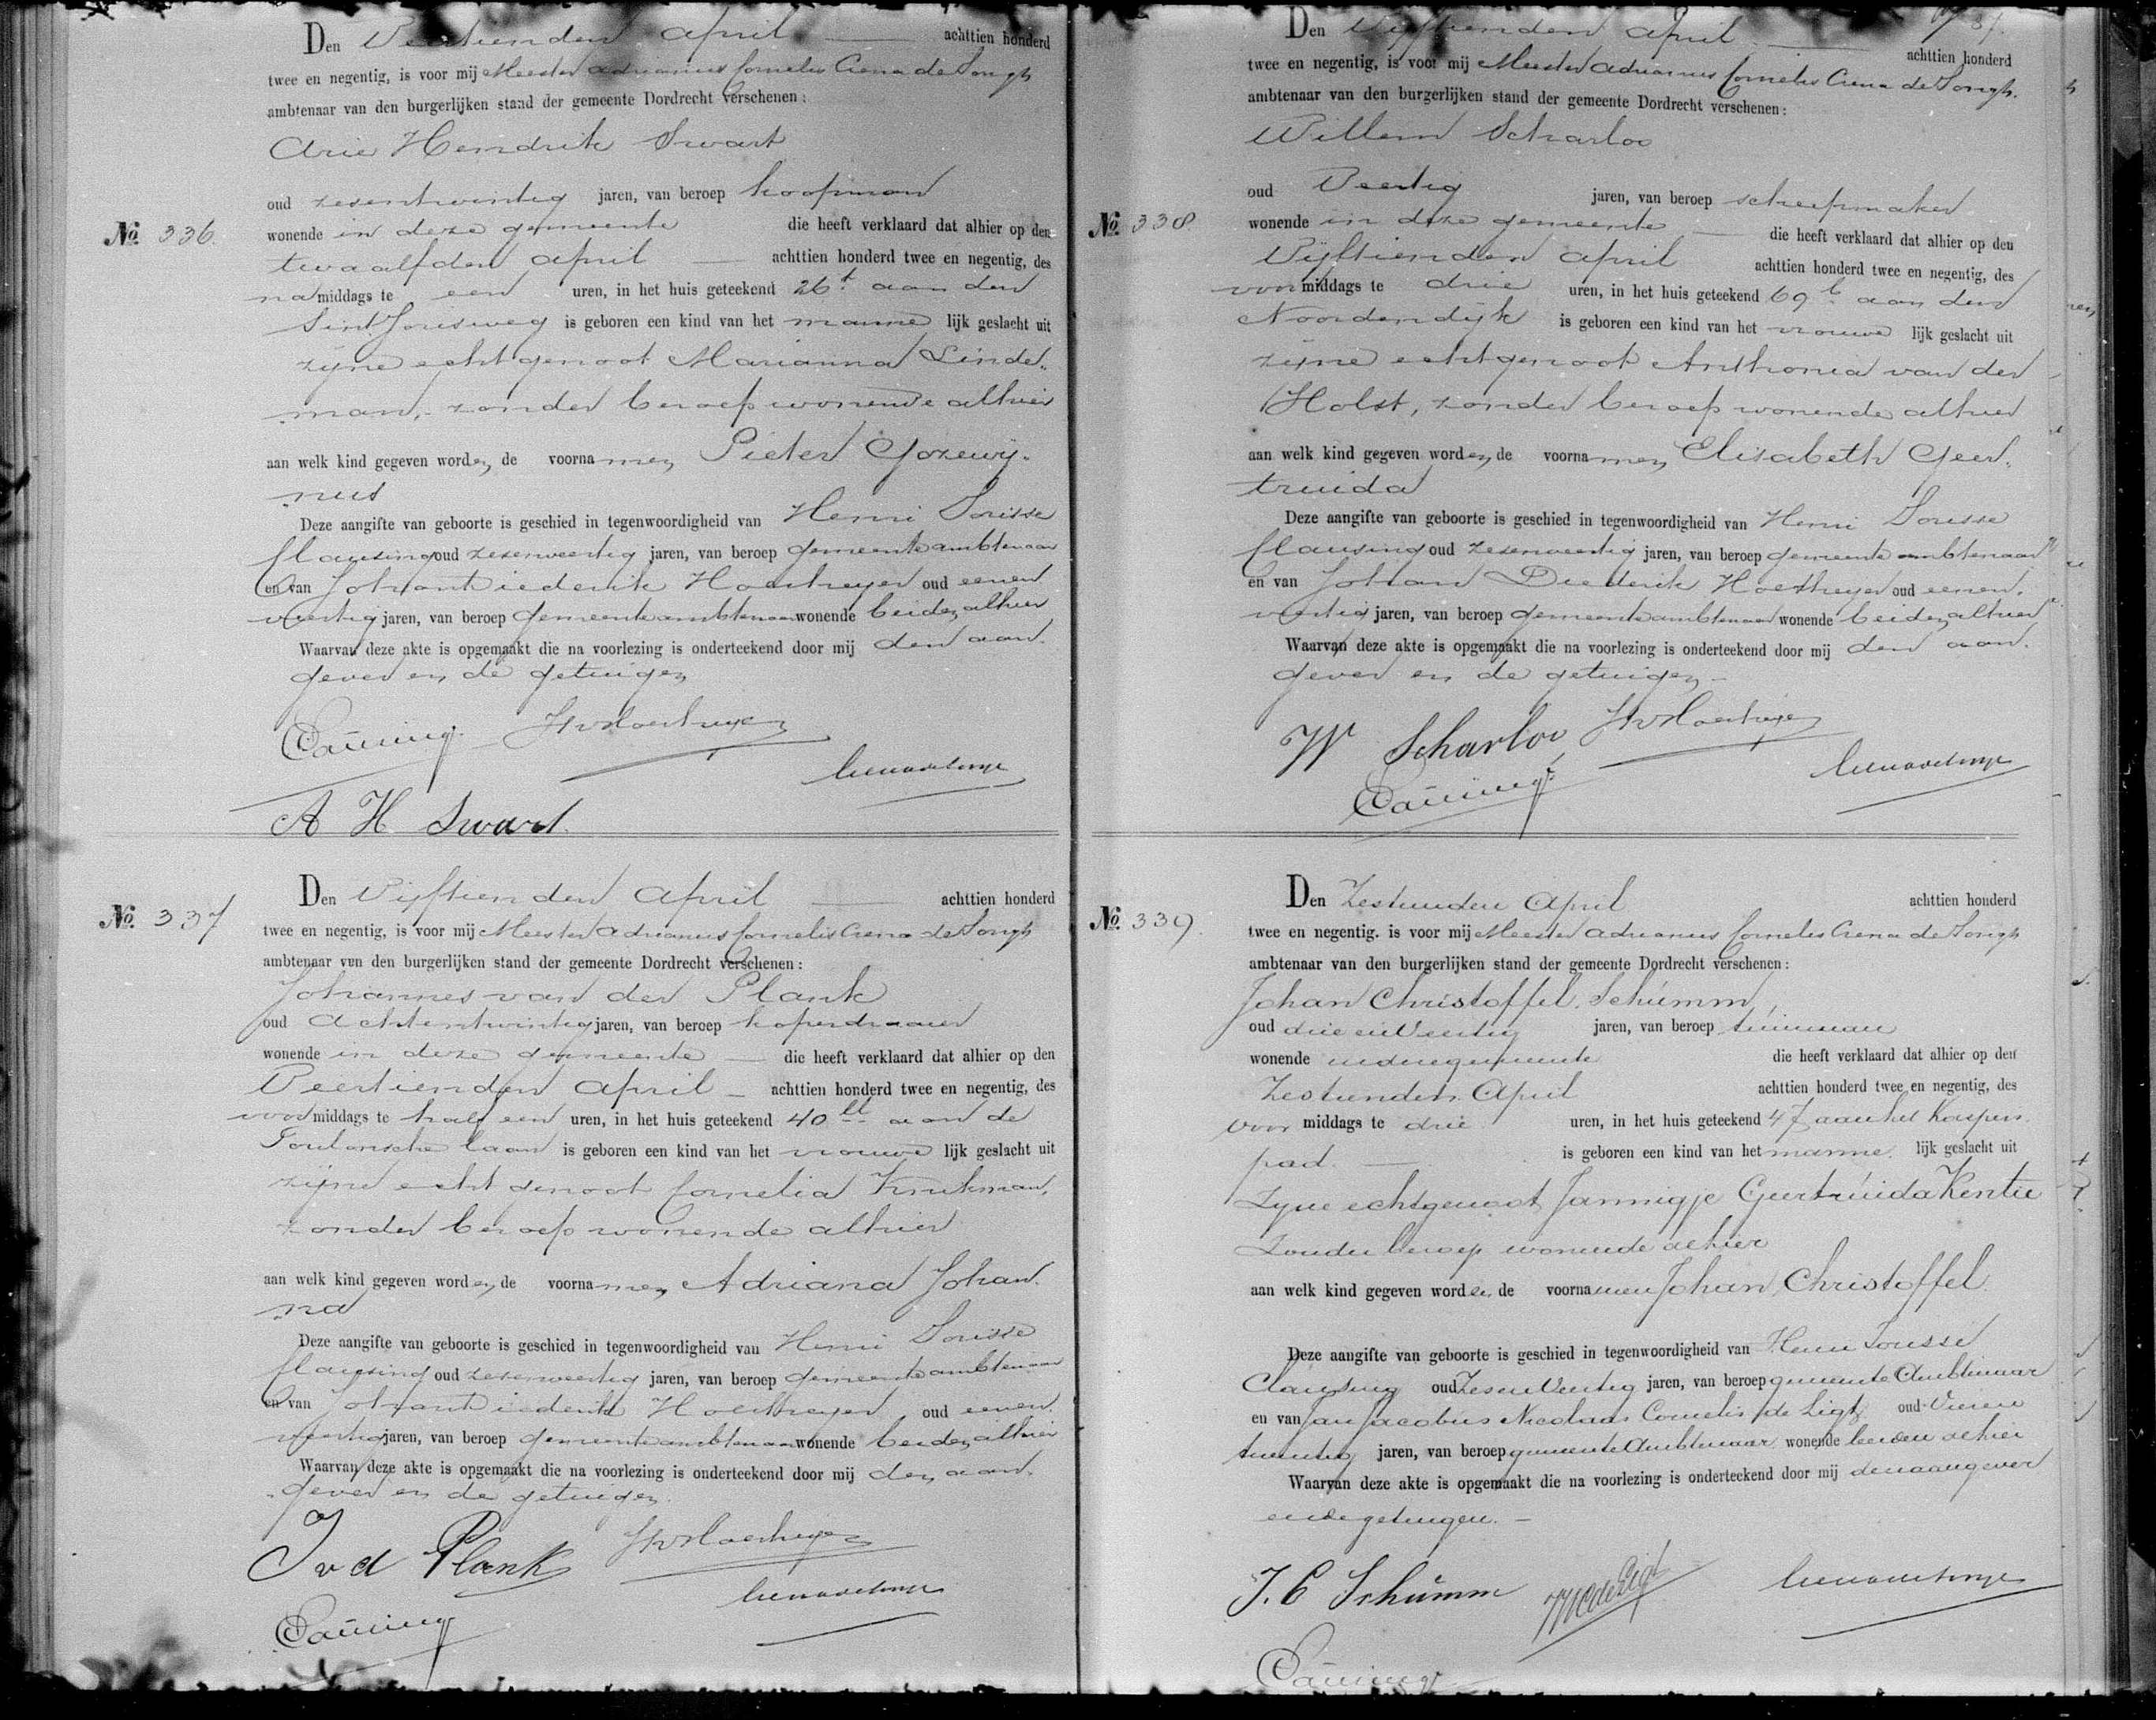 Den Veertienden April achttien honderd
twee en negentig, is voor mij Meester Adrianus Cornelis Crena de Iongh
ambtenaar van den burgerlijken stand der gemeente Dordrecht verschenen:
Arie Hendrik Swart
oud zesentwintig jaren, van beroep koopman
No. 336 wonende in deze gemeente die heeft verklaard dat alhier op den
twaalfden April achttien honderd twee en negentig, des
namiddags te een uren, in het huis geteekend 26t aan den
Sint Jorisweg is geboren een kind van het manne lijk geslacht uit
zijne echtgenoot Marianna Linde-
man, zonder beroep wonende alhier
aan welk kind gegeven worden de voornamen Pieter Gozewij-
nus
Deze aangifte van geboorte is geschied in tegenwoordigheid van Henri Sorisse
Clausing oud zesenveertig jaren, van beroep gemeente ambtenaar
en van Johan Diederik Hoetheyer oud eenen
veertig jaren, van beroep gemeente ambtenaar wonende beiden alhier
Waarvan deze akte is opgemaakt die na voorlezing is onderteekend door mij den aan-
gever en de getuigen
A H Swart.
No. 337 Den Vijftienden April achttien honderd
twee en negentig, is voor mij Meester Adrianus Cornelis Crena de Iongh
ambtenaar van den burgerlijken stand der gemeente Dordrecht verschenen:
Johannes van der Plank
oud achtentwintig jaren, van beroep koperdraaier
wonende in deze gemeente die heeft verklaard dat alhier op den
Veertienden April achttien honderd twee en negentig, des
voormiddags te half een uren, in het huis geteekend 40 aan de
Toulonsche laan is geboren een kind van het vrouwe lijk geslacht uit
zijne echtgenoot Cornelia Kruikman,
zonder beroep wonende alhier
aan welk kind gegeven worden de voornamen Adriana Johan-
na
Deze aangifte van geboorte is geschied in tegenwoordigheid van Henri Sorisse
Clausing oud zesenveertig jaren, van beroep gemeente ambtenaar
en van Johan Diederik Hoetheyer oud eenen
veertig jaren, van beroep gemeente ambtenaar wonende beiden alhier
Waarvan deze akte is opgemaakt die na voorlezing is onderteekend door mij den aan-
gever en de getuigen.
J v d Plank
Den Vijftienden April achttien honderd
twee en negentig, is voor mij Meester Adrianus Cornelis Crena de Iongh
ambtenaar van den burgerlijken stand der gemeente Dordrecht verschenen:
Willem Scharloo
oud Veertig jaren, van beroep scheepmaker
No. 338 wonende in deze gemeente die heeft verklaard dat alhier op den
Vijftienden April achttien honderd twee en negentig, des
voormiddags te drie uren, in het huis geteekend 69b aan den
Noordendijk is geboren een kind van het vrouwe lijk geslacht uit
zijne echtgenoot Anthonia van der
Holst, zonder beroep wonende alhier
aan welk kind gegeven worden de voornamen Elisabeth Geer-
truida
Deze aangifte van geboorte is geschied in tegenwoordigheid van Henri Sorisse
Clausing oud zesenveertig jaren, van beroep gemeente ambtenaar
en van Johan Diederik Hoetheyer oud eenen-
veertig jaren, van beroep gemeente ambtenaar wonende beiden alhier
Waarvan deze akte is opgemaakt die na voorlezing is onderteekend door mij den aan-
gever en de getuigen
W Scharloo
Den Zestienden April achttien honderd
No. 339. twee en negentig. is voor mij Meester Adrianus Cornelis Crena de Iongh
ambtenaar van den burgerlijken stand der gemeente Dordrecht verschenen:
Johan Christoffel Schumm,
oud drie en Veertig jaren, van beroep tuinman
wonende in deze gemeente die heeft verklaard dat alhier op den
Zestienden April achttien honderd twee en negentig, des
voor middags te drie uren, in het huis geteekend 47 aan het Kaspers
pad. is geboren een kind van het manne lijk geslacht uit
Zyne echtgenoot Jannigje Geertruida Kentie
Zonder beroep wonende alhier
aan welk kind gegeven worden de voornamen Johan Christoffel.
Deze aangifte van geboorte is geschied in tegenwoordigheid van Henri Sorisse
Clausing oud Zesen Veertig jaren, van beroep gemeente Ambtenaar
en van Jan Jacobus Nicolaas Cornelis de Ligt oud Vieren
twintig jaren, van beroep gemeente Ambtenaar wonende beiden alhier
Waarvan deze akte is opgemaakt die na voorlezing is onderteekend door mij den aangever
en de getuigen.
J. C Schumm